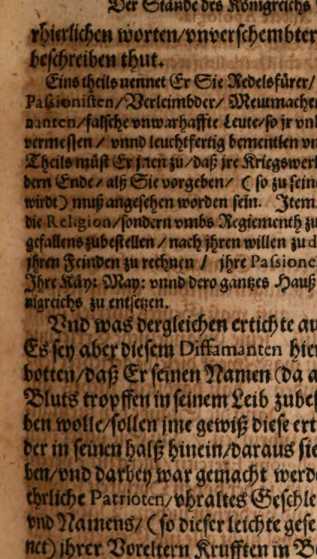 Der Stände des Königreichs
rhierlichen worten/vnverschembter
beschreiben thut.
Eins theils nennet Er Sie Redelsfürer/
Passionisten/Verleimbder/Meutmacher
nanten/falsche vnwarhaffte Leute/so jr vnb
vermessen/vnnd leuchtfertig bementlen vn
Theils müst Er jnen zu/daß jre Kriegswerb
dern Ende/alß Sie vorgeben/ (so zu seine
wirdt) muß angesehen worden sein. Item
die Religion/sondern vmbs Regiementh zu
gefallens zubestellen/nach jhren willen zu d
jhren Feinden zu rechnen/ jhre Passione
Ihre Käy: May: vnnd dero gantzes Hauß
nigreichs zu entsetzen.
Vnd was dergleichen ertichte au
Es sey aber diesem Diffamanten hier
botten/daß Er seinen Namen (da a
Bluts tropffen in seinem Leib zubef
ben wolle/sollen jme gewiß diese ert
der in seinen halß hinein/daraus sie
ben/vnd darbey war gemacht werd
ehrliche Patrioten/vhraltes Geschle
vnd Namens/ (so dieser leichte gese
net) jhrer Voreltern Krufften in B